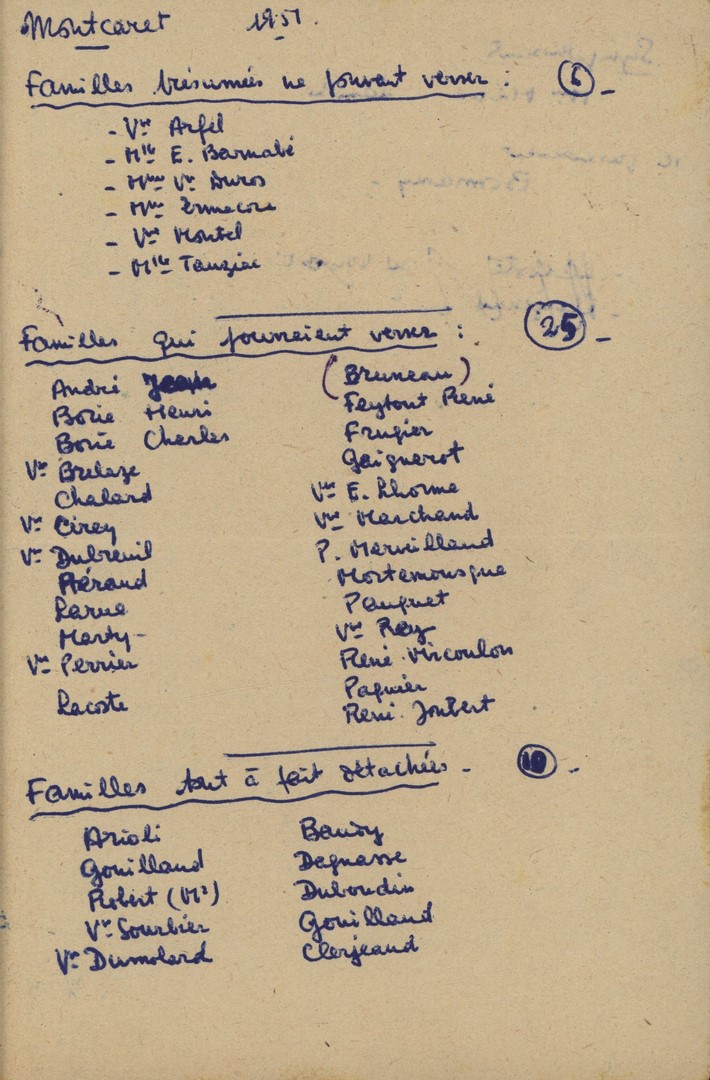 Montcaret 1951.
Familles présumées ne pouvant verser : (6) -
- Vve Arfel
- Mlle E. Barnabé
- Mme Vve Duros
- Mme Ermacora
- Vve Montel
- Mlle Tauziac
Familles qui pourraient verser : (25) -
André
Borie Henri
Borie Charles
Vve Brelaze
Chalard
Vve Cirey
Vve Dubreuil
Héraud
Larue
Marty -
Vve Perrier
Lacoste
(Bruneau)
Feytout René
Frugier
Gaignerot
Vve E. Lhorme
Vve Marchand
P. Merveillaud
Mortemousque
Pauquet
Vve Rey
René Vircoulon
Paquier
René Joubert
Familles tout à fait détachées - (10) -
Arioli
Gouilland
Robert (Mce)
Vve Sourbier
Vve Dumolard
Baudy
Degnasse
Duboudin
Gouilland
Clerjeaud